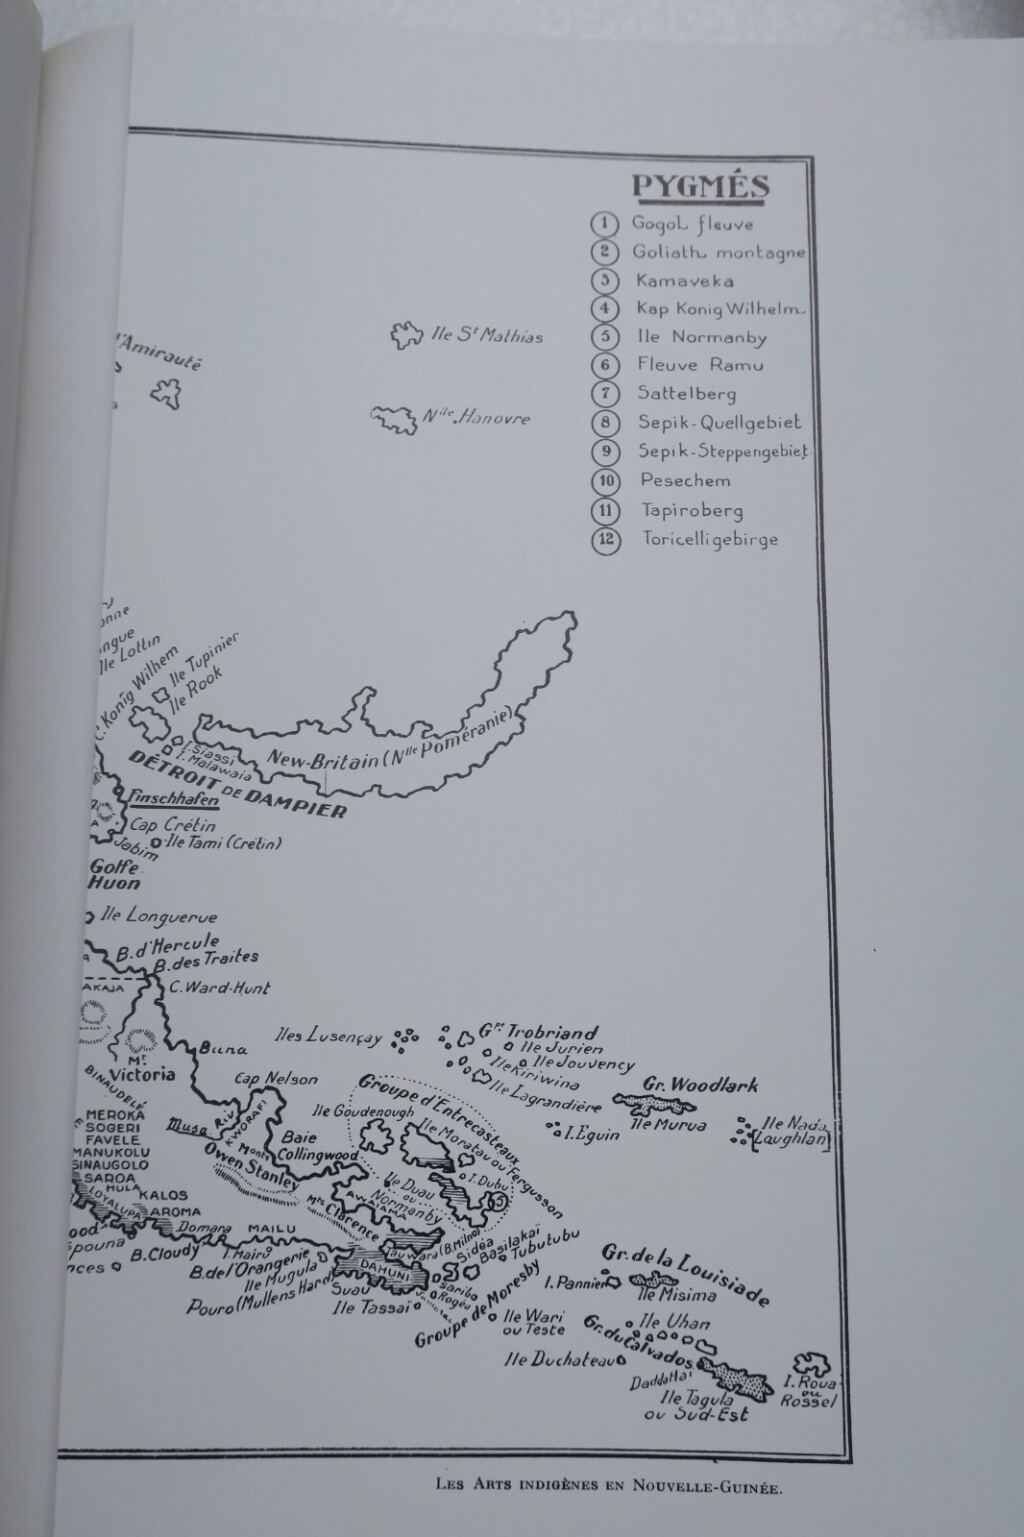 PYGMÉS
1 Gogol fleuve
2 Goliath montagne
3 Kamaveka
4 Kap Konig Wilhelm
5 Ile Normanby
6 Fleuve Ramu
7 Sattelberg
8 Sepik-Quellgebiet
9 Sepik-Steppengebiet
10 Pesechem
11 Tapiroberg
12 Toricelligebirge
l'Amirauté
Ile St Mathias
Nlle Hanovre
Ile Lottin
C. Konig Wilhem
Ile Tupinier
Ile Rook
I. Siassi
I. Malawaia
New-Britain (Nlle Poméranie)
DÉTROIT DE DAMPIER
Finschhafen
Cap Crétin
Jabim
Ile Tami (Crétin)
Golfe
Huon
Ile Longuerue
B. d'Hercule
B. des Traites
AKAJA
C. Ward-Hunt
Mt
Victoria
Buna
BINAUDELÉ
Iles Lusençay
Gpe Trobriand
Ile Jurien
Ile Jouvency
Ile Kiriwina
Ile Lagrandière
Gr. Woodlark
Ile Murua
I. Eguin
Ile Nada
(Laughlan)
Cap Nelson
Groupe d'Entrecasteaux
Ile Goudenough
Ile Moratau ou Fergusson
I. Dubu
MEROKA
SOGERI
FAVELE
MANUKOLU
SINAUGOLO
SAROA
HULA
KALOS
LOYALUPA
AROMA
Musa
RIV.
KWORAFI
Baie
Collingwood
Monts
Owen Stanley
Mts Clarence
Ile Duau
ou
Normanby
5
Domara
MAILU
B. Cloudy
I. Mairg
B. de l'Orangerie
Ile Mugula
Pouro (Mullens Hard)
DAHUNI
Suau
Ile Tassaï
Tauwara (B. Milne)
Sidéa
Basilakai
Tubutubu
Sariba
Rogea
Groupe de Moresby
Ile Wari
ou Teste
Gr. de la Louisiade
I. Pannier
Ile Misima
Ile Uhan
Gr. du Calvados
Ile Duchateau
Daddaha'
Ile Tagula
ou Sud-Est
I. Roua
ou
Rossel
LES ARTS INDIGÈNES EN NOUVELLE-GUINÉE.